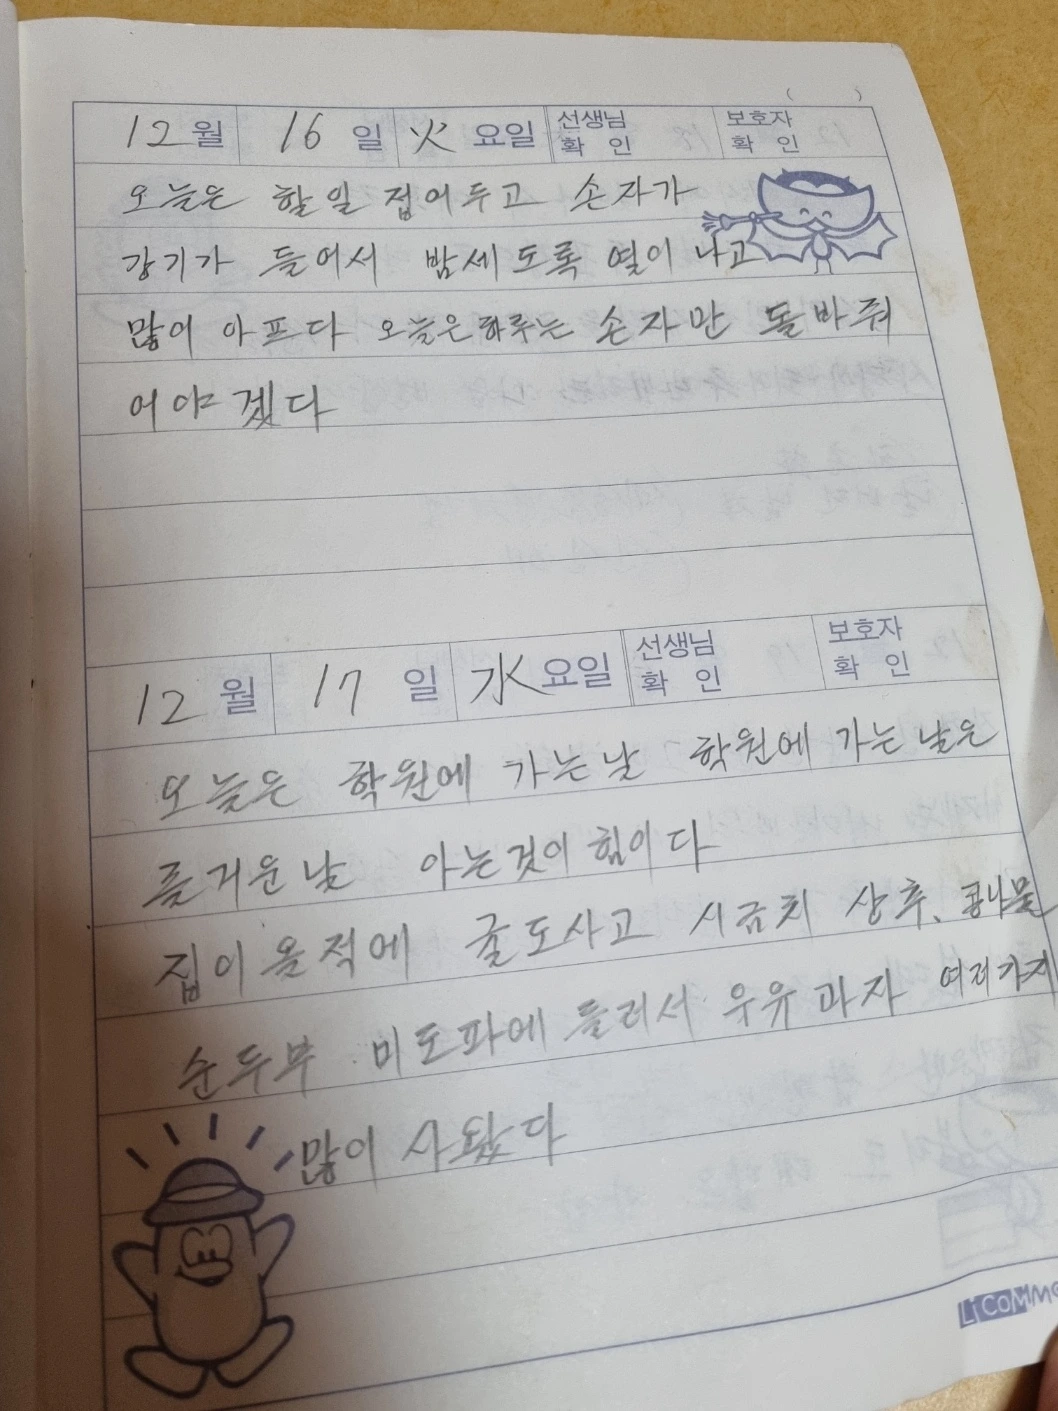 12월 16일 火요일 선생님 확인 보호자 확인
오늘은 할일 접어두고 손자가
강기가 들어서 밤세도록 열이 나고
많이 아프다 오늘은하루는 손자만 돌바줘
어야겠다
12월 17일 水요일 선생님 확인 보호자 확인
오늘은 학원에 가는날 학원에 가는날은
즐거운날 아는것이 힘이다
집이올적에 굴도사고 시금치 상추、콩나물
순두부 미도파에 들러서 우유과자 여러가지
많이 사왔다
LiCOMM